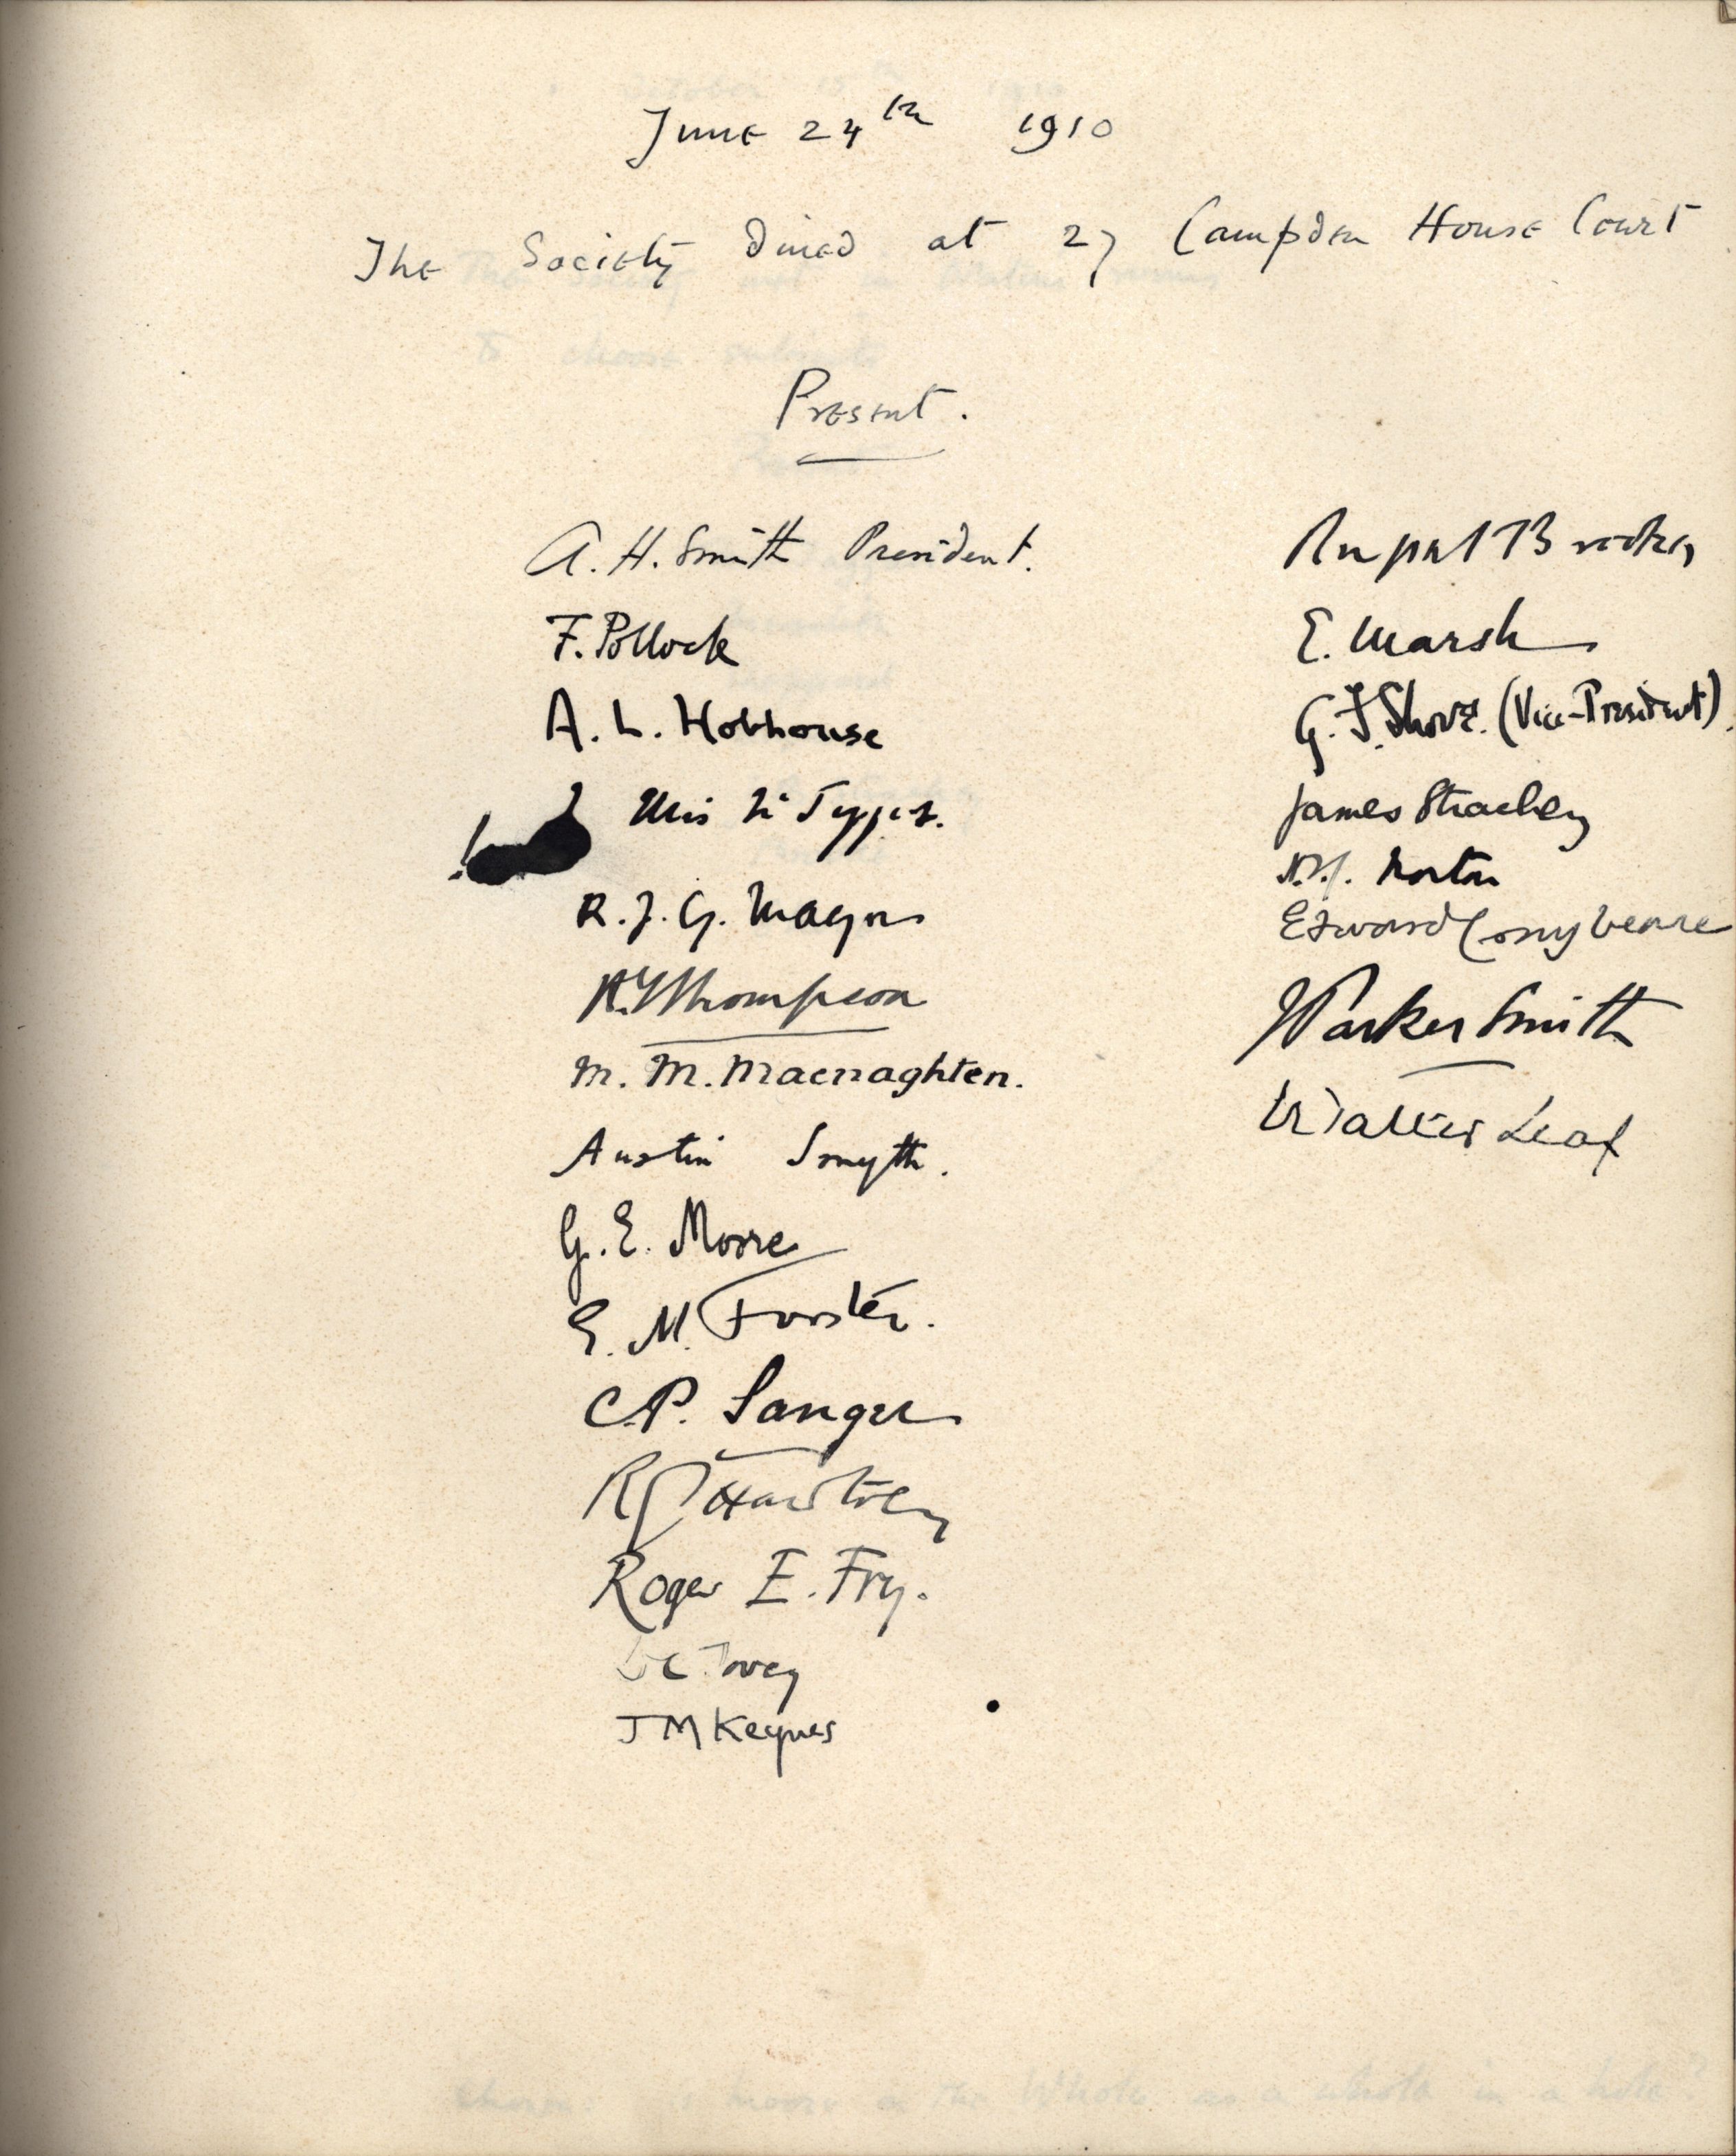 June 24th 1910
The Society dined at 27 Campden House Court
Present.
A. H. Smith President.
F. Pollock
A. L. Hobhouse
!
R. J. G. Mayor
H.Y Thompson
M. M. Macnaghten.
Austin Smyth.
G. E. Moore
E. M. Forster.
C.P. Sanger
R G Hawtrey
Roger E. Fry.
D C Tovey
J M Keynes
Rupert Brooke
E. Marsh
G. F. Shove. (Vice-President).
James Strachey
H.T.J. Norton
Edward Conybeare
J Parker Smith
Walter Leaf